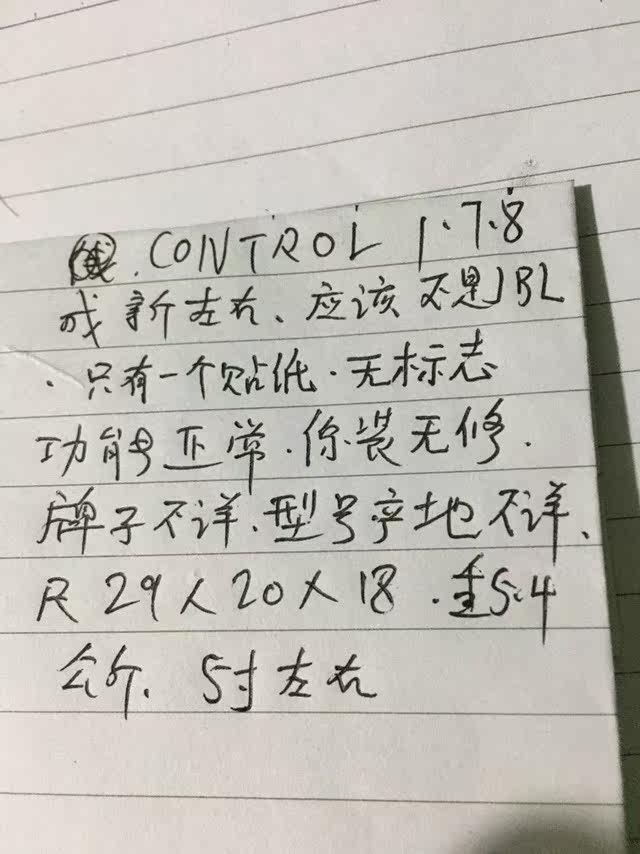 CONTROL 1.7.8
成新左右、应该不是JBL
.只有一个贴纸.无标志
功能正常.原装无修.
牌子不详.型号产地不详、
R 29X20X18.重5.4
公斤.5寸左右